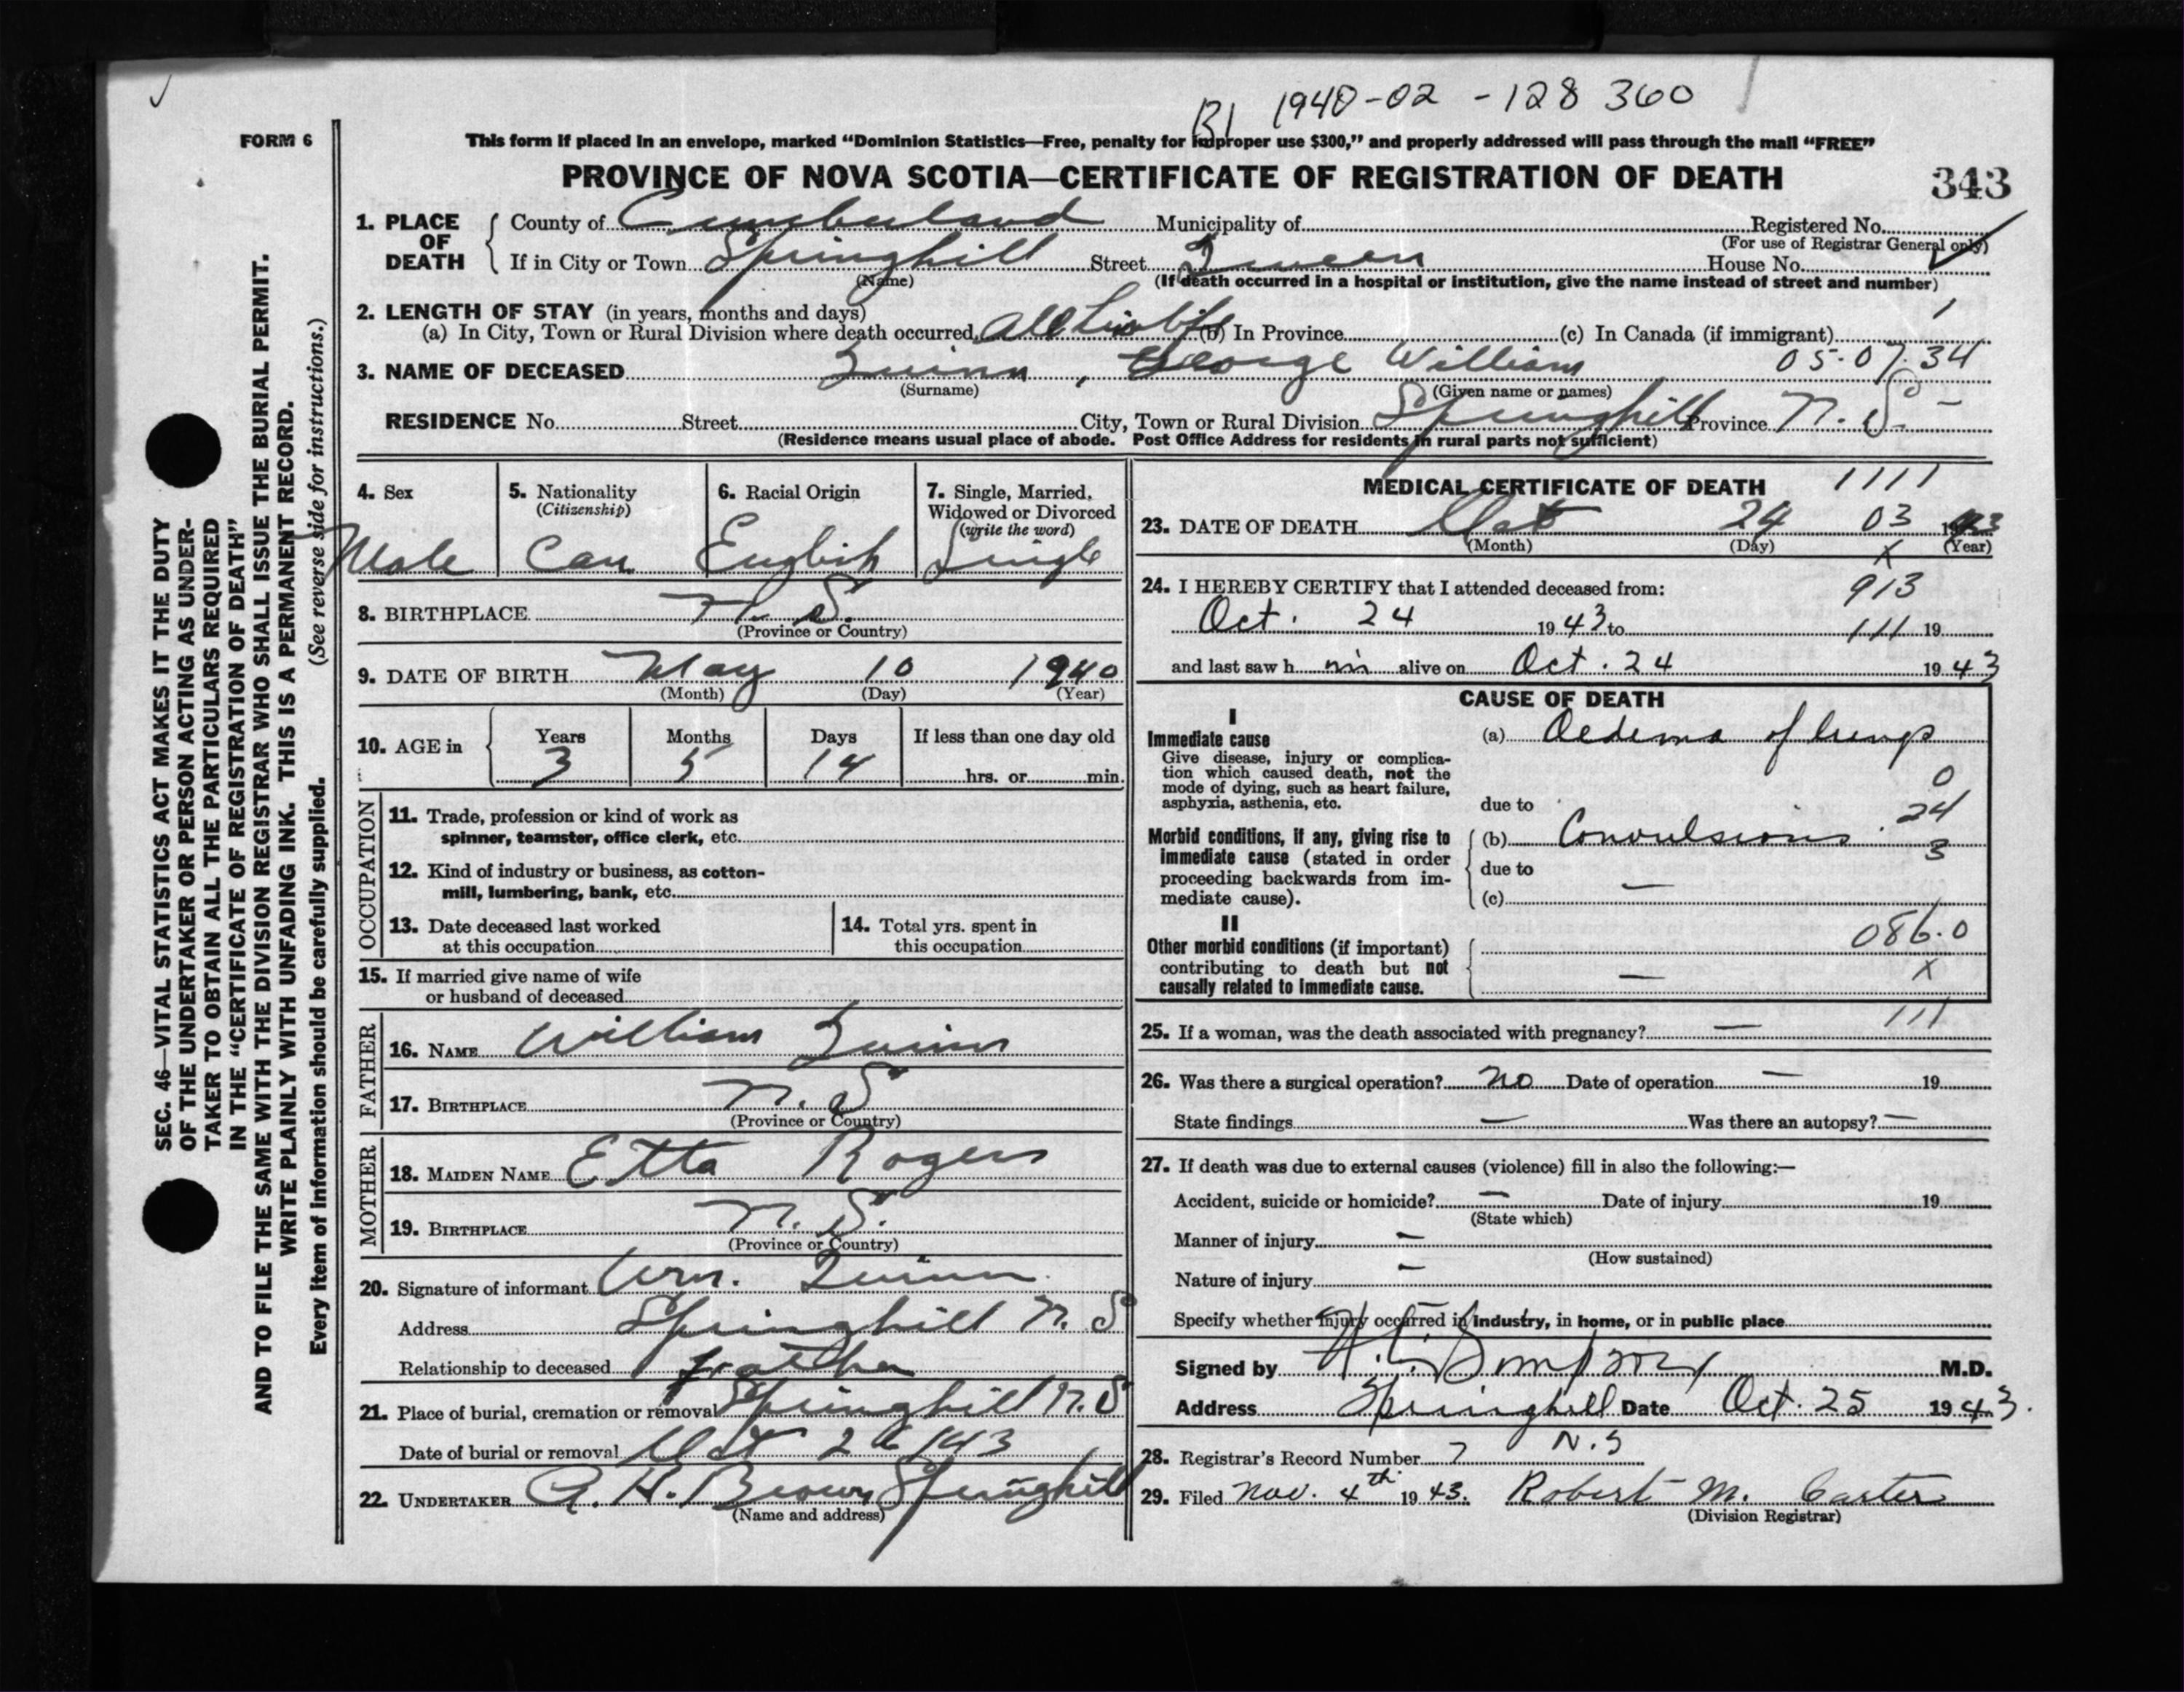 1940-02-128360
B1
FORM 6
This form if placed in an envelope, marked “Dominion Statistics—Free, penalty for improper use $300,” and properly addressed will pass through the mail “FREE”
PROVINCE OF NOVA SCOTIA—CERTIFICATE OF REGISTRATION OF DEATH 343
1. PLACE OF DEATH County of Cumberland Municipality of Registered No.
(For use of Registrar General only)
If in City or Town Springhill Street Queen House No.
(Name) (If death occurred in a hospital or institution, give the name instead of street and number)
2. LENGTH OF STAY (in years, months and days)
(a) In City, Town or Rural Division where death occurred All his life (b) In Province (c) In Canada (if immigrant)
3. NAME OF DECEASED Quinn, George William 05-07-34
(Surname) (Given name or names)
RESIDENCE No. Street City, Town or Rural Division Springhill Province N.S.
(Residence means usual place of abode. Post Office Address for residents in rural parts not sufficient)
4. Sex 5. Nationality 6. Racial Origin 7. Single, Married,
(Citizenship) Widowed or Divorced
(write the word)
Male Can English Single
8. BIRTHPLACE N.S.
(Province or Country)
9. DATE OF BIRTH May 10 1940
(Month) (Day) (Year)
10. AGE in Years Months Days If less than one day old
3 5 14 hrs. or min.
OCCUPATION
11. Trade, profession or kind of work as
spinner, teamster, office clerk, etc.
12. Kind of industry or business, as cotton-
mill, lumbering, bank, etc.
13. Date deceased last worked 14. Total yrs. spent in
at this occupation this occupation
15. If married give name of wife
or husband of deceased
FATHER
16. NAME William Quinn
17. BIRTHPLACE N.S.
(Province or Country)
MOTHER
18. MAIDEN NAME Etta Rogers
19. BIRTHPLACE N.S.
(Province or Country)
20. Signature of informant Wm. Quinn
Address Springhill N.S
Relationship to deceased Father
21. Place of burial, cremation or removal Springhill N.S
Date of burial or removal Oct 26 1943
22. UNDERTAKER A. H. Brown Springhill
(Name and address)
MEDICAL CERTIFICATE OF DEATH 1111
23. DATE OF DEATH Oct 24 03 1943
(Month) (Day) (Year)
X
24. I HEREBY CERTIFY that I attended deceased from: 913
Oct. 24 1943 to 111 19
and last saw him alive on Oct. 24 1943
CAUSE OF DEATH
I
Immediate cause (a) Oedema of lungs
Give disease, injury or complica-
tion which caused death, not the
mode of dying, such as heart failure, 0
asphyxia, asthenia, etc. due to
24
Morbid conditions, if any, giving rise to (b) Convulsions 3
immediate cause (stated in order
proceeding backwards from im- due to
mediate cause). (c) —
II 086.0
Other morbid conditions (if important)
contributing to death but not — X
causally related to immediate cause.
111
25. If a woman, was the death associated with pregnancy? —
26. Was there a surgical operation? no Date of operation — 19
State findings — Was there an autopsy? —
27. If death was due to external causes (violence) fill in also the following:—
Accident, suicide or homicide? — Date of injury 19
(State which)
Manner of injury —
(How sustained)
Nature of injury —
Specify whether injury occurred in industry, in home, or in public place
Signed by M.D.
Address Springhill Date Oct. 25 1943.
N.S
28. Registrar's Record Number 7
29. Filed Nov. 4th 1943. Robert M. Carter
(Division Registrar)
SEC. 46—VITAL STATISTICS ACT MAKES IT THE DUTY
OF THE UNDERTAKER OR PERSON ACTING AS UNDER-
TAKER TO OBTAIN ALL THE PARTICULARS REQUIRED
IN THE “CERTIFICATE OF REGISTRATION OF DEATH”
AND TO FILE THE SAME WITH THE DIVISION REGISTRAR WHO SHALL ISSUE THE BURIAL PERMIT.
WRITE PLAINLY WITH UNFADING INK. THIS IS A PERMANENT RECORD.
Every item of information should be carefully supplied. (See reverse side for instructions.)